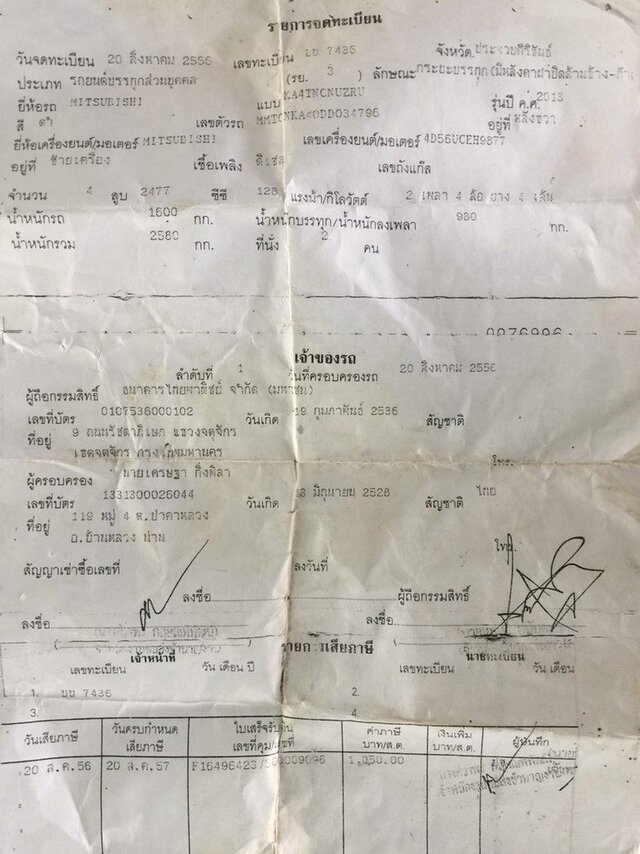 รายการจดทะเบียน
วันจดทะเบียน 20 สิงหาคม 2556 เลขทะเบียน บบ 7435 จังหวัด ประจวบคีรีขันธ์
ประเภท รถยนต์บรรทุกส่วนบุคคล (รย. 3 ) ลักษณะ กระบะบรรทุก(มีหลังคาฝาปิดด้านข้าง-
ยี่ห้อรถ MITSUBISHI แบบ KA4TNCNUZRU รุ่นปี ค.ศ. 2013
สี ดำ เลขตัวรถ MMTCNKA40DD034796 อยู่ที่ หลังขวา
ยี่ห้อเครื่องยนต์/มอเตอร์ MITSUBISHI เลขเครื่องยนต์/มอเตอร์ 4D56UCEH9877
อยู่ที่ ซ้ายเครื่อง เชื้อเพลิง ดีเซล เลขถังแก๊ส
จำนวน 4 สูบ 2477 ซีซี 128 แรงม้า/กิโลวัตต์ 2 เพลา 4 ล้อ ยาง 4 เส้น
น้ำหนักรถ 1600 กก. น้ำหนักบรรทุก/น้ำหนักลงเพลา 980 กก.
น้ำหนักรวม 2580 กก. ที่นั่ง 2 คน
0076906
เจ้าของรถ
ลำดับที่ 1 วันที่ครอบครองรถ 20 สิงหาคม 2556
ผู้ถือกรรมสิทธิ์ ธนาคารไทยพาณิชย์ จำกัด (มหาชน)
เลขที่บัตร 0107536000102 วันเกิด 19 กุมภาพันธ์ 2536 สัญชาติ
ที่อยู่ 9 ถนนรัชดาภิเษก แขวงจตุจักร
เขตจตุจักร กรุงเทพมหานคร โทร.
ผู้ครอบครอง นายเศรษฐา กิ่งพิลา
เลขที่บัตร 1331300026044 วันเกิด 13 มิถุนายน 2528 สัญชาติ ไทย
ที่อยู่ 119 หมู่ 4 ต.ป่าคาหลวง
อ.บ้านหลวง น่าน โทร.
สัญญาเช่าซื้อเลขที่ ลงวันที่
ลงชื่อ ผู้ถือกรรมสิทธิ์
ลงชื่อ ลงชื่อ
เจ้าหน้าที่ รายการเสียภาษี นายทะเบียน
เลขทะเบียน วัน เดือน ปี เลขทะเบียน วัน เดือน
1. บบ 7435 2.
3. 4.
วันเสียภาษี วันครบกำหนดเสียภาษี ใบเสร็จรับเงินเลขที่คุม/เลขที่ ค่าภาษี บาท/ส.ต. เงินเพิ่ม บาท/ส.ต. ผู้บันทึก
20 ส.ค.56 20 ส.ค.57 1,050.00